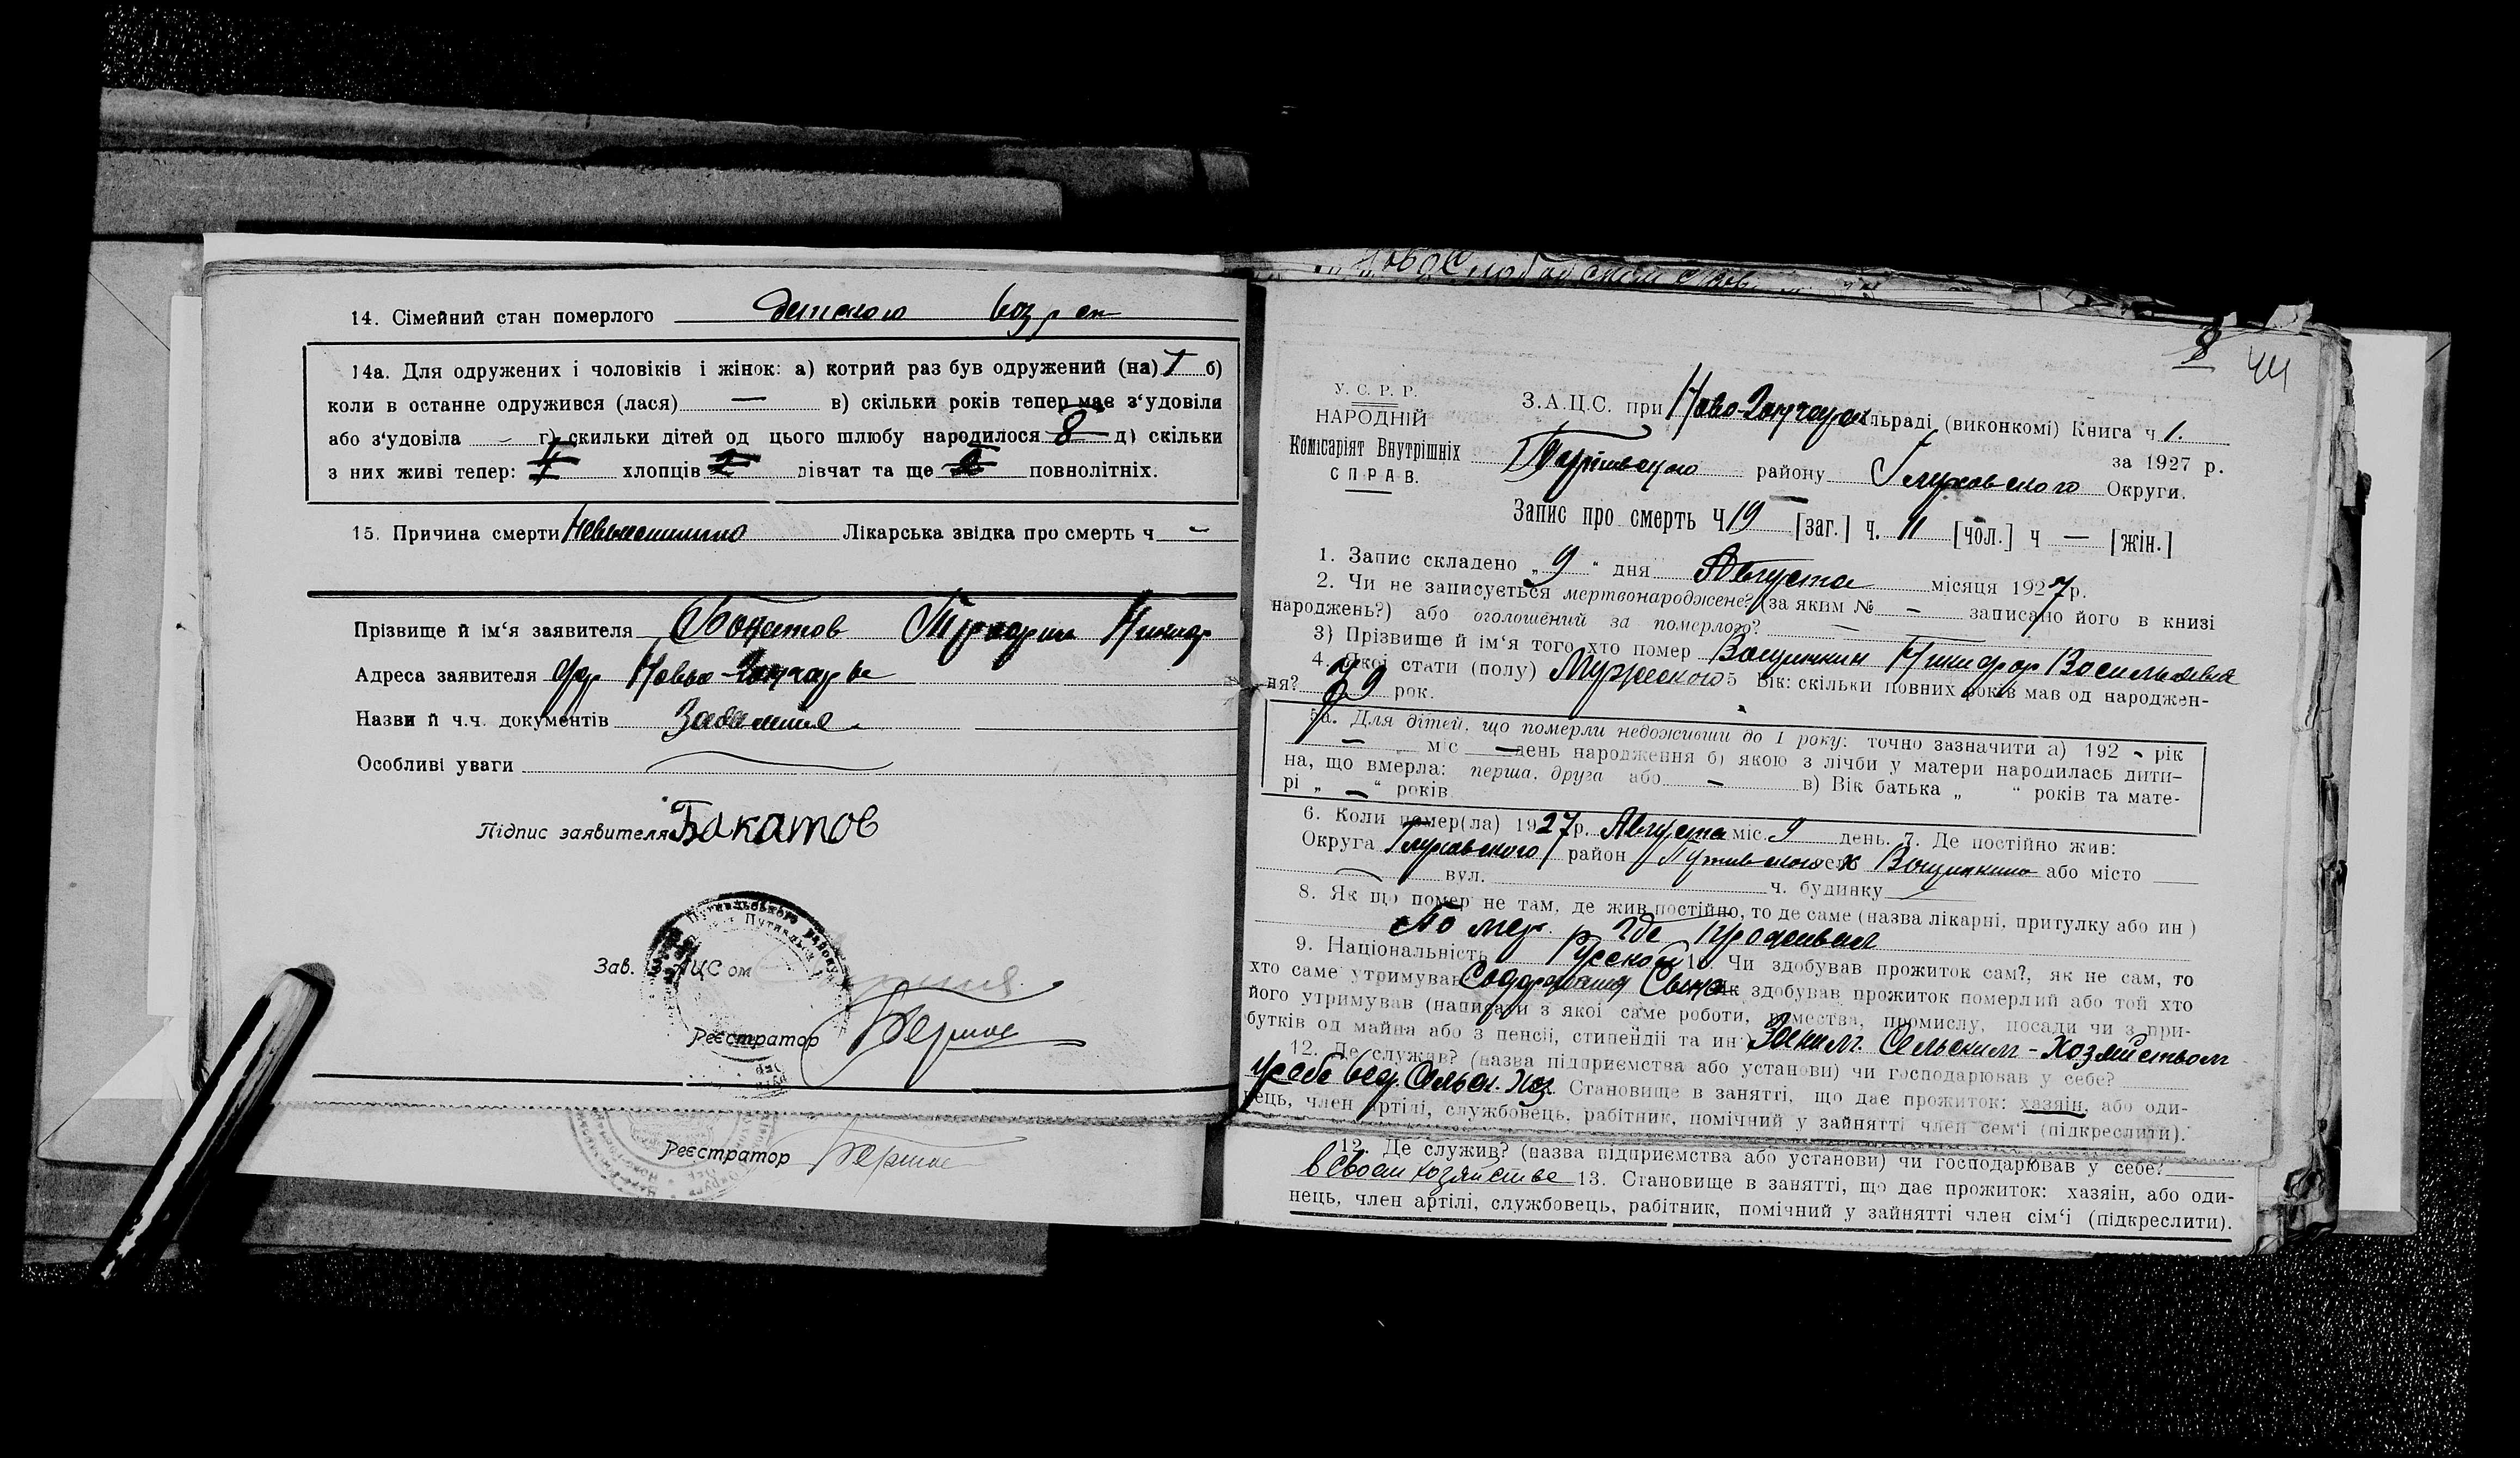 14. Сімейний стан померлого детского возрст
14а. Для одружених і чоловіків і жінок: а) котрий раз був одружений (на) 1 б)
коли в останне одружився (лася) — в) скільки років тепер має з‘удовіли
або з‘удовіла - г) скильки дітей од цього шлюбу народилося 8 д) скільки
з них живі тепер: хлопців дівчат та ще повнолітніх.
15. Причина смерти Лікарська звідка про смерть ч —
Прізвище й ім‘я заявителя Бакатов
Адреса заявителя Ново-Гончары
Назви й ч.ч. документів
Особливі уваги
Підпис заявителя Бакатов
Путивльського району
Зав. ЗАЦС ом
Реєстратор
Реєстратор
8
44
У. С. Р. Р.
НАРОДНІЙ
Комісаріят Внутрішніх
СПРАВ.
З.А.Ц.С. при Ново-Гончарск льраді (виконкомі) Книга ч 1.
за 1927 р.
Путивльского району Глуховского Округи.
Запис про смерть Ч 19 [заг.] ч. 11 [чол.] ч — [жін.]
1. Запис складено „ 9 “ дня Августа місяця 1927 р.
2. Чи не записується мертвонароджене? (за яким № — записано його в книзі
народжень?) або оголошений за померлого? —
3) Прізвище й ім‘я того хто помер Вощинкин Никифор Васильевич
4. Якої стати (полу) Мужеского 5 Вік: скільки повних років мав од народжен-
ня? 9 рок.
5а. Для дітей, що померли недоживши до 1 року: точно зазначити а) 192 - рік
— „ міс — день народження б) якою з лічби у матери народилась дити-
на, що вмерла: перша, друга або — в) Вік батька „ “ років та мате-
рі „ — “ років
6. Коли помер(ла) 1927 р. Августа міс. 9 день. 7. Де постійно жив:
Округа Глуховского район Путивльского сел. х Вощинкино або місто
вул. ч. будинку —
8. Як що помер не там, де жив постійно, то де саме (назва лікарні, притулку або ин)
Помер. где проживал
9. Національність Русской 10. Чи здобував прожиток сам?, як не сам, то
хто саме утримував Содержания Сына Як здобував прожиток померлий або той хто
його утримував (написати з якої саме роботи, ремества, промислу, посади чи з при-
бутків од майна або з пенсії, стипендії та ин Сельским-Хозяйством
12. Де служив? (назва підприємства або установи) чи господарював у себе?
у себе вед. Сельск. Хоз. Становище в занятті, що дає прожиток: хазяін, або оди-
нець, член артілі, службовець, рабітник, помічний у зайнятті член сем‘і (підкреслити).
12. Де служив? (назва підприємства або установи) чи господарював у себе?
в своем хозяйстве 13. Становище в занятті, що дає прожиток: хазяін, або оди-
нець, член артілі, службовець, рабітник, помічний у зайнятті член сім‘і (підкреслити).